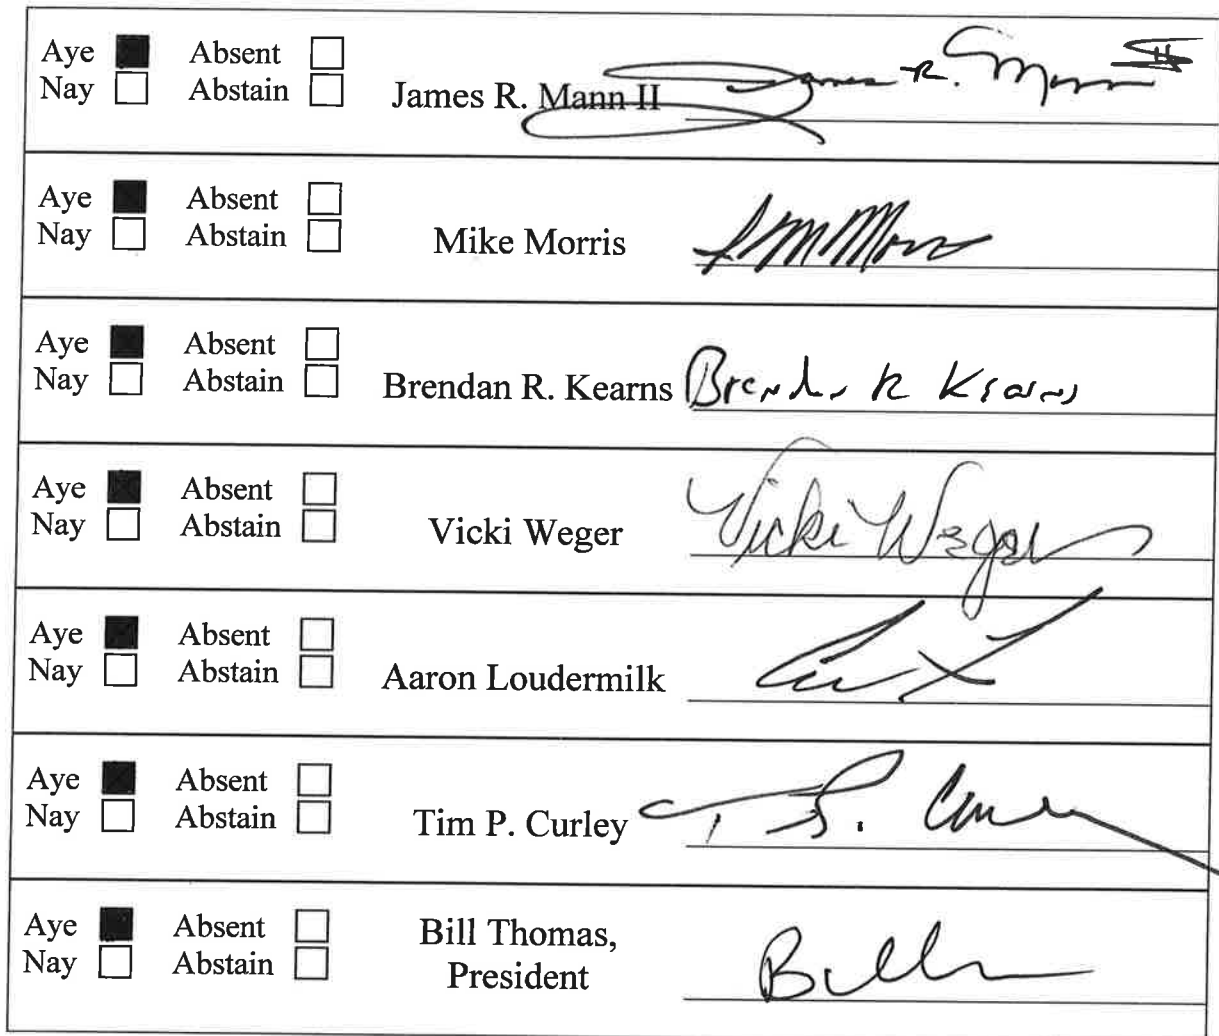 Aye ■ Absent □
Nay □ Abstain □
James R. Mann II James R. Mann II
Aye ■ Absent □
Nay □ Abstain □
Mike Morris
Aye ■ Absent □
Nay □ Abstain □
Brendan R. Kearns Brendan R Kearns
Aye ■ Absent □
Nay □ Abstain □
Vicki Weger Vicki Weger
Aye ■ Absent □
Nay □ Abstain □
Aaron Loudermilk
Aye ■ Absent □
Nay □ Abstain □
Tim P. Curley
Aye ■ Absent □
Nay □ Abstain □
Bill Thomas,
President